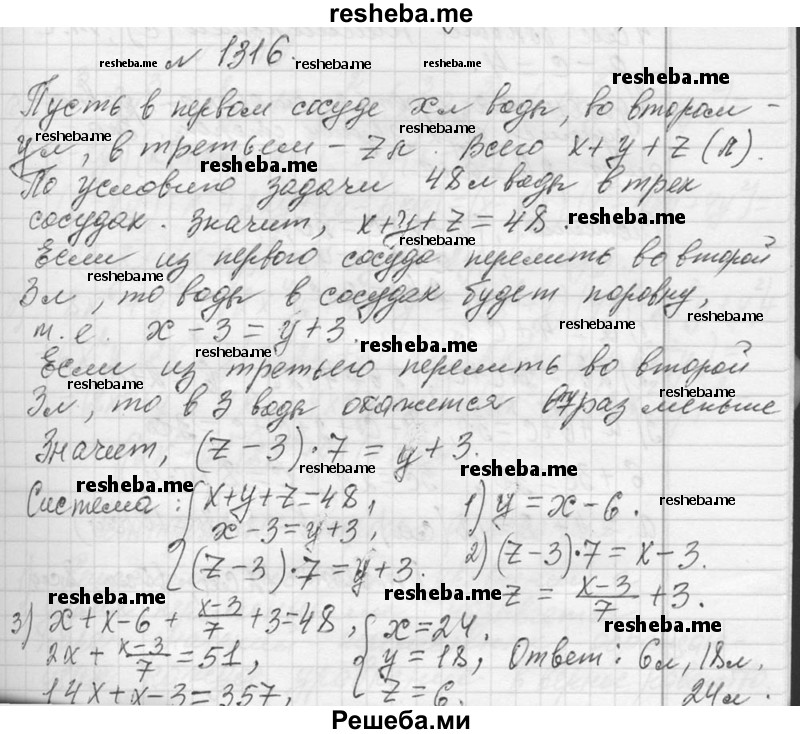 resheba.me
resheba.me № 1316. resheba.me resheba.me
resheba.me
Пусть в первом сосуде xл воды, во втором –
resheba.me resheba.me
yл, в третьем – zл. Всего x+y+z (л).
resheba.me
По условию задачи 48л воды в трех
сосудах. Значит, x+y+z=48. resheba.me
resheba.me
Если из первого сосуда перелить во второй
resheba.me
3л, то воды в сосудах будет поровну,
resheba.me resheba.me
т.е. x-3=y+3.
resheba.me resheba.me
Если из третьего перелить во второй
resheba.me resheba.me
3л, то в 3 воды окажется в 7 раз меньше
Значит, (z-3)·7=y+3.
resheba.me resheba.me
resheba.me resheba.me
Система: { x+y+z=48, 1) y=x-6.
x-3=y+3,
(z-3)·7=y+3. 2) (z-3)·7=x-3.
resheba.me resheba.me z = (x-3)/7 + 3.
resheba.me
3) x+x-6+(x-3)/7+3=48, { x=24,
2x+(x-3)/7=51, y=18, Ответ: 6л, 18л,
14x+x-3=357, z=6. 24л.
Решеба.ми